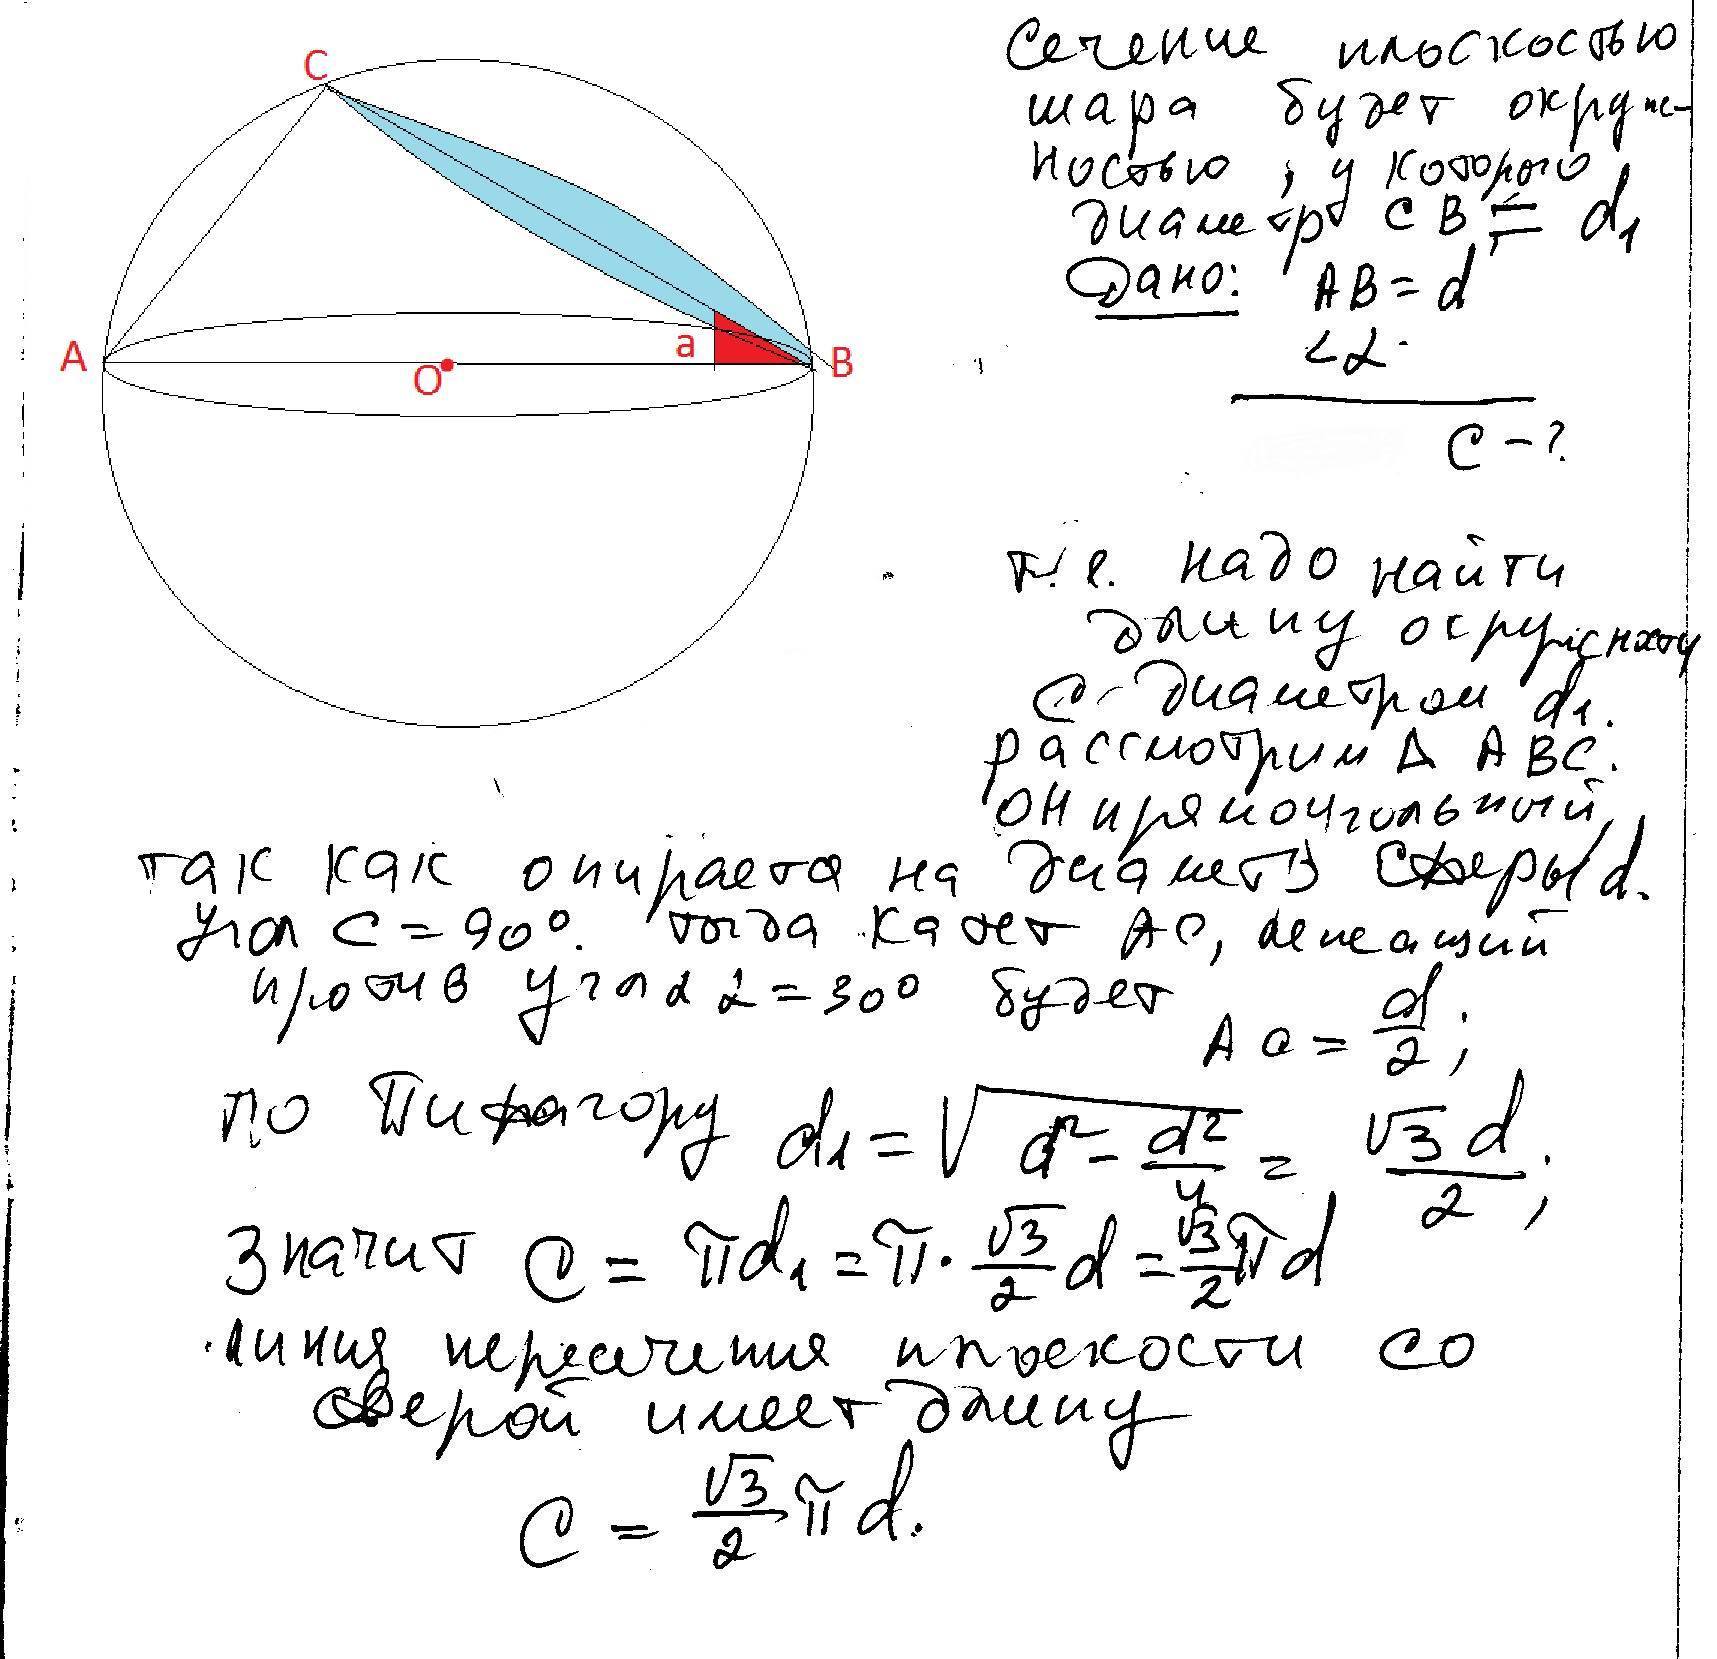 C
A
a
O
B
Сечение плоскостью
шара будет окруж-
ностью, у которого
диаметр CB = d₁
Дано: AB = d
∠α.
C - ?
т.е. надо найти
длину окружности
с диаметром d₁.
рассмотрим Δ ABC.
он прямоугольный,
так как опирается на диаметр сферы d.
угол C = 90°. тогда катет AC, лежащий
против угла α = 30° будет
AC = d/2;
по Пифагору d₁ = √(d² - d²/4) = √3 d/2;
Значит C = πd₁ = π · √3/2 d = √3/2 πd
линия пересечения плоскости со
сферой имеет длину
C = √3/2 π d.